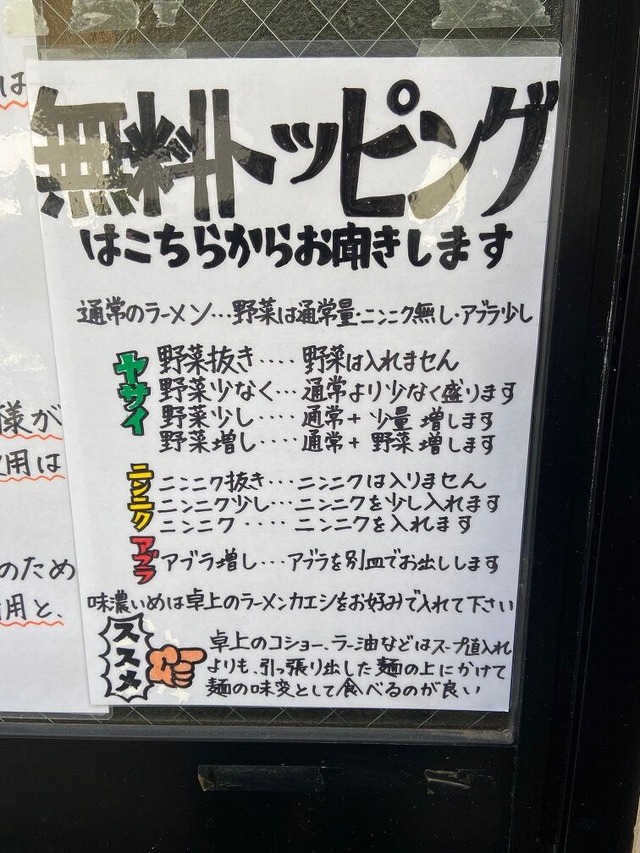 は
無料トッピング
はこちらからお聞きします
通常のラーメン…野菜は通常量・ニンニク無し・アブラ少し
ヤサイ
野菜抜き‥‥野菜は入れません
野菜少なく…通常より少なく盛ります
野菜少し‥‥通常+少量増します
野菜増し‥‥通常+野菜増します
様が
用は
ニンニク
ニンニク抜き…ニンニクは入りません
ニンニク少し…ニンニクを少し入れます
ニンニク‥‥ニンニクを入れます
アブラ
アブラ増し…アブラを別皿でお出しします
のため
用と、
味濃いめは卓上のラーメンカエシをお好みで入れて下さい
ススメ
卓上のコショー、ラー油などはスープ直入れ
よりも、引っ張り出した麺の上にかけて
麺の味変として食べるのが良い